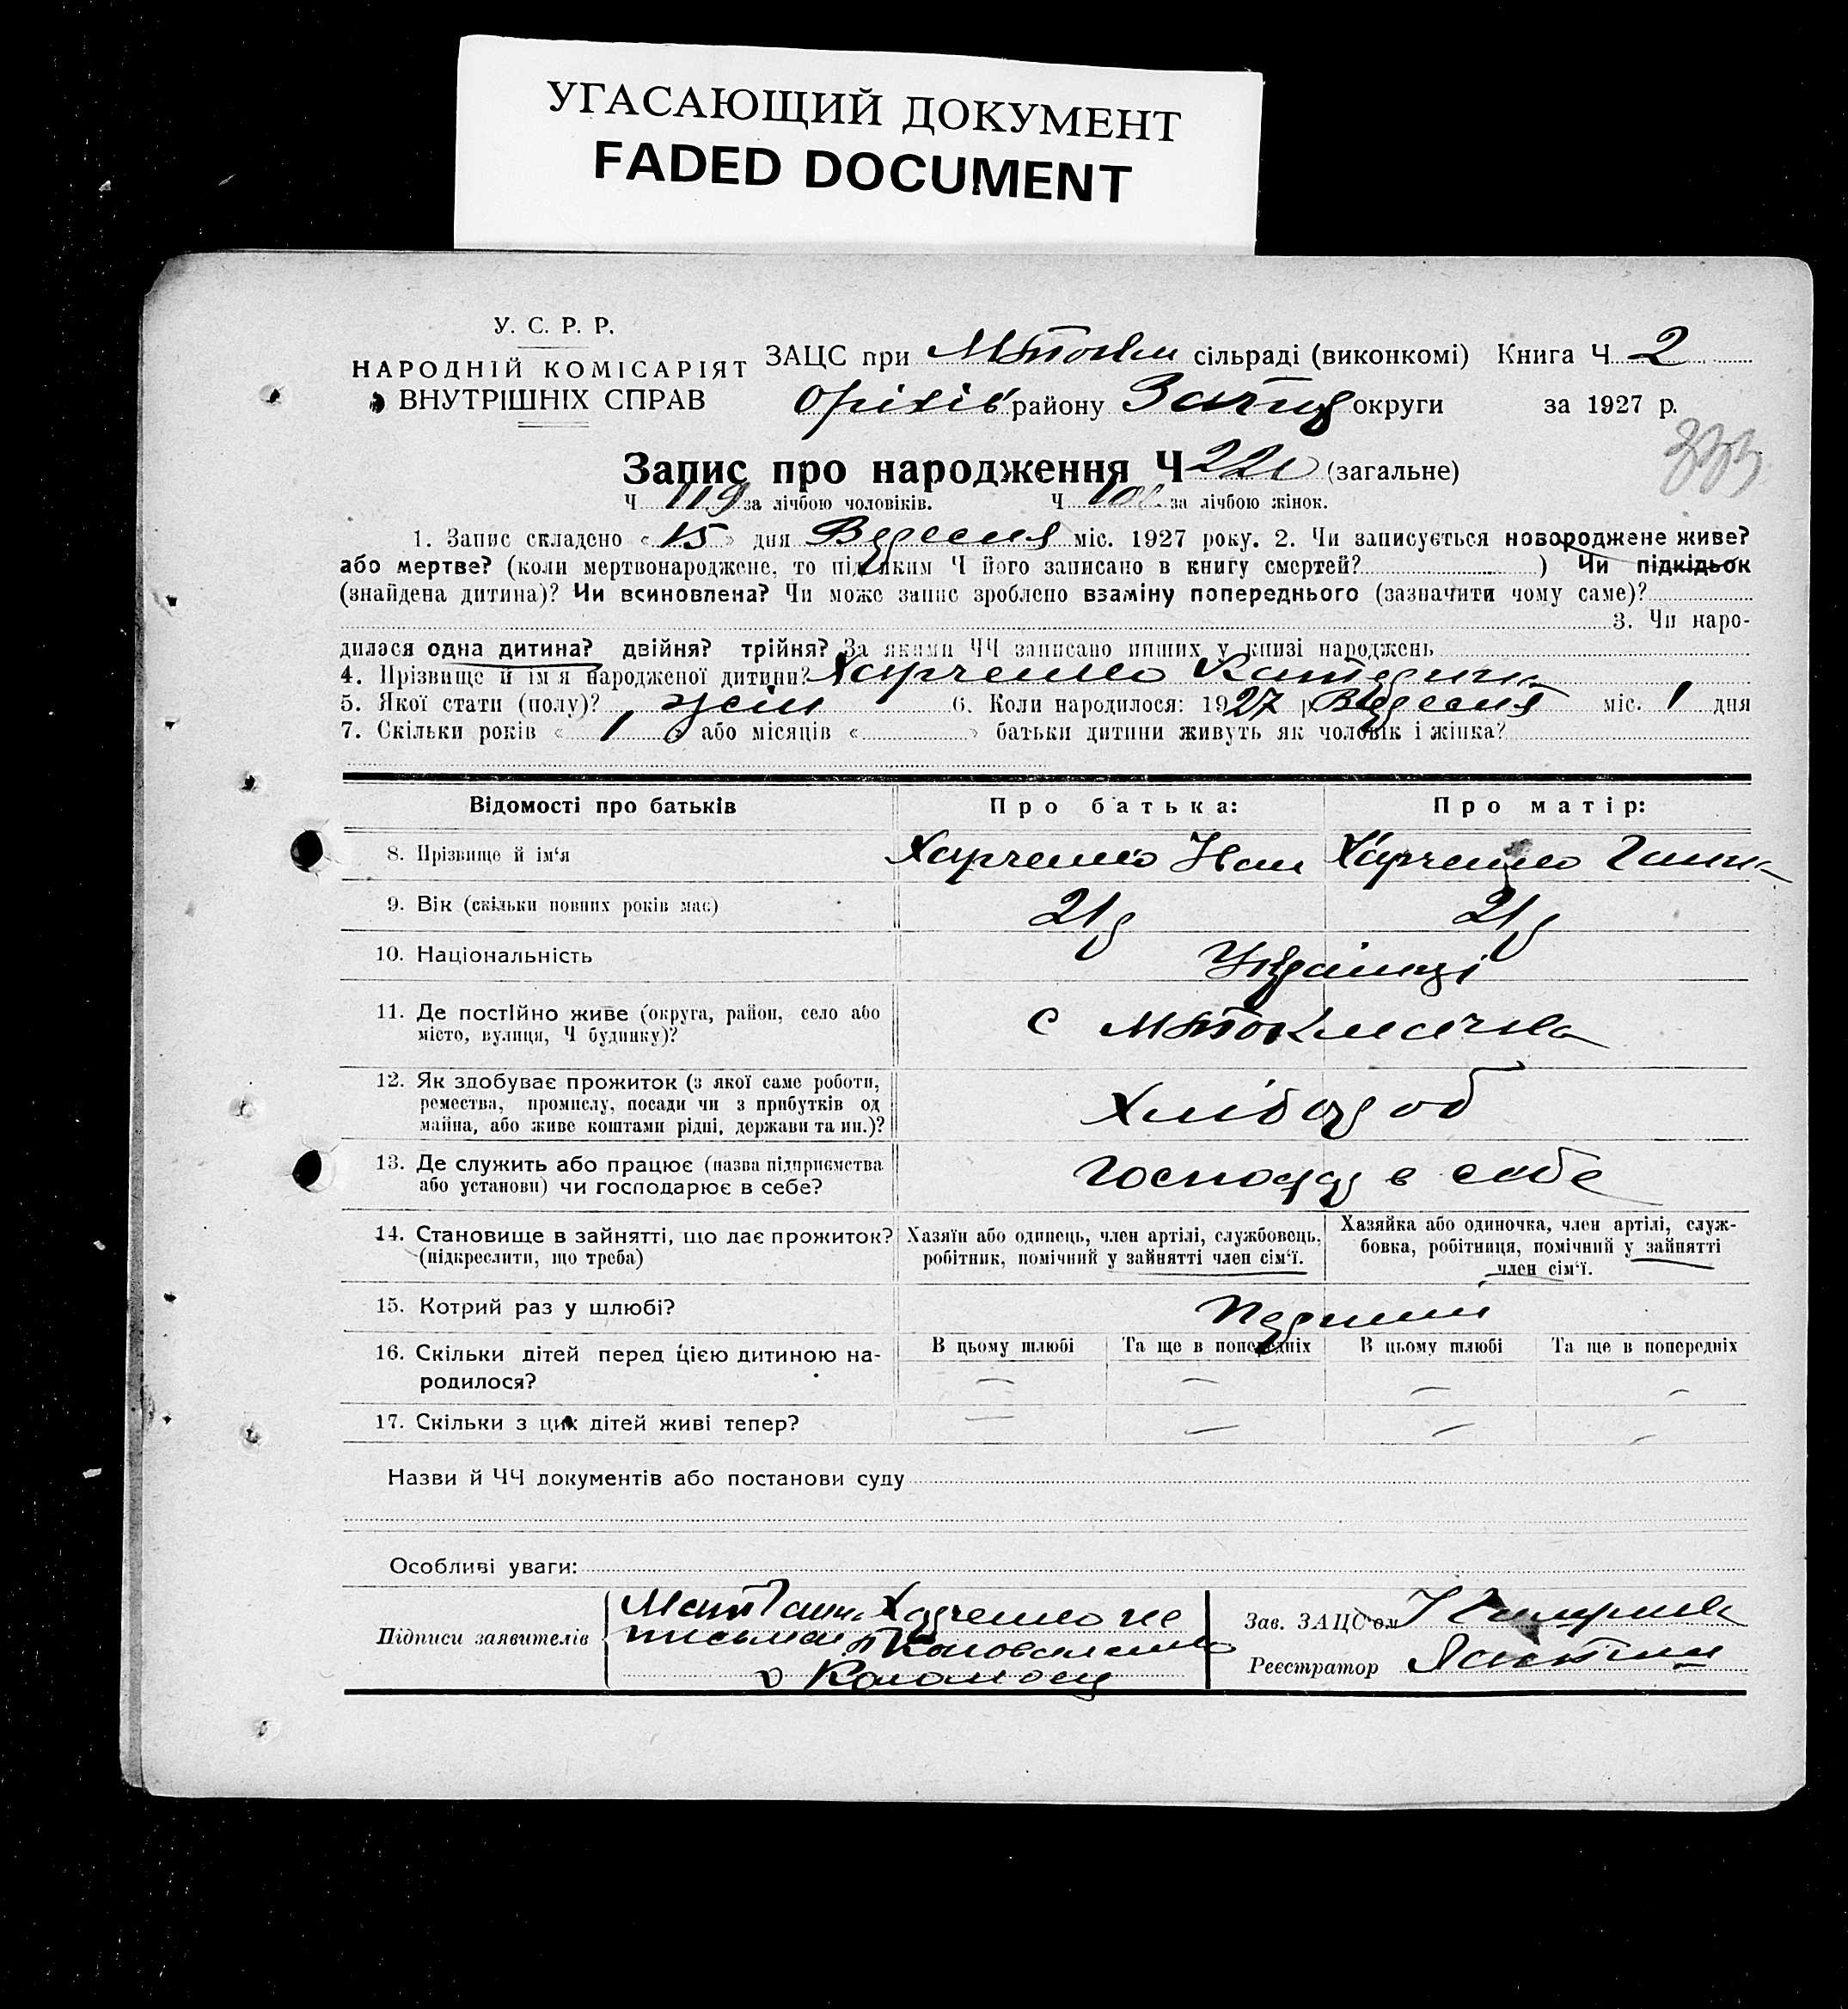 УГАСАЮЩИЙ ДОКУМЕНТ
FADED DOCUMENT
У. С. Р. Р.
НАРОДНІЙ КОМІСАРІЯТ
ВНУТРІШНІХ СПРАВ
ЗАЦС при М Токм сільраді (виконкомі) Книга Ч. 2
Оріхів району Запор округи за 1927 р.
Запис про народження Ч 220 (загальне)
Ч 119 за лічбою чоловіків. Ч за лічбою жінок.
1. Запис складено « 15 » дня Вересня міс. 1927 року. 2. Чи записується новороджене живе?
або мертве? (коли мертвонароджене, то під яким Ч його записано в книгу смертей? ) Чи підкідьок
(знайдена дитина)? Чи всиновлена? Чи може запис зроблено взаміну попереднього (зазначити чому саме)?
3. Чи наро-
дилася одна дитина? двійня? трійня? За якими ЧЧ записано инших у книзі народжень
4. Прізвище й ім'я народженої дитини? Харченко Катерина
5. Якої стати (полу)? жін 6. Коли народилося: 1927 р Вересня міс. 1 дня
7. Скільки років « 1 » або місяців « » батьки дитини живуть як чоловік і жінка?
Відомості про батьків Про батька: Про матір:
8. Прізвище й ім'я Харченко Іван Харченко Ганна
9. Вік (скільки повних років має) 21 р 21 р
10. Національність Українці
11. Де постійно живе (округа, район, село або
місто, вулиця, Ч будинку)? с М Токмачка
12. Як здобуває прожиток (з якої саме роботи,
ремества, промислу, посади чи з прибутків од
майна, або живе коштами рідні, держави та ин.)? Хлібороб
13. Де служить або працює (назва підприємства
або установи) чи господарює в себе? Господар в себе
14. Становище в зайнятті, що дає прожиток?
(підкреслити, що треба)
Хазяїн або одинець, член артілі, службовець,
робітник, помічний у зайнятті член сім'ї.
Хазяйка або одиночка, член артілі, служ-
бовка, робітниця, помічний у зайнятті
член сім'ї.
15. Котрий раз у шлюбі? Перший
16. Скільки дітей перед цією дитиною на-
родилося?
В цьому шлюбі Та ще в попередніх В цьому шлюбі Та ще в попередніх
— — — —
17. Скільки з цих дітей живі тепер? — — — —
Назви й ЧЧ документів або постанови суду
Особливі уваги:
Підписи заявителів
Мати Ганна Харченко не
письмен Коноваленко
Зав. ЗАЦС'ом
Реєстратор